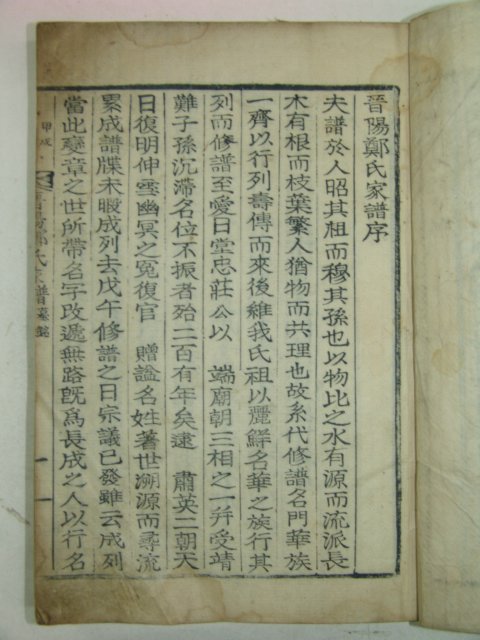 晉陽鄭氏家譜序
夫譜於人昭其祖而穆其孫也以物比之水有源而流派長
木有根而枝葉繁人猶物而共理也故系代修譜名門華族
一齊以行列壽傳而來後維我氏祖以麗鮮名華之族行其
列而修譜至愛日堂忠莊公以 端廟朝三相之一幷受靖
難子孫沉滯名位不振者殆二百有年矣逮 肅英二朝天
日復明伸雪幽冥之冤復官 贈諡名姓著世溯源而尋流
累成譜牒未暇成列去戊午修譜之日宗議已發雖云成列
當此變章之世所帶名字改遞無路旣爲長成之人以行名
甲戌
氏家譜
一